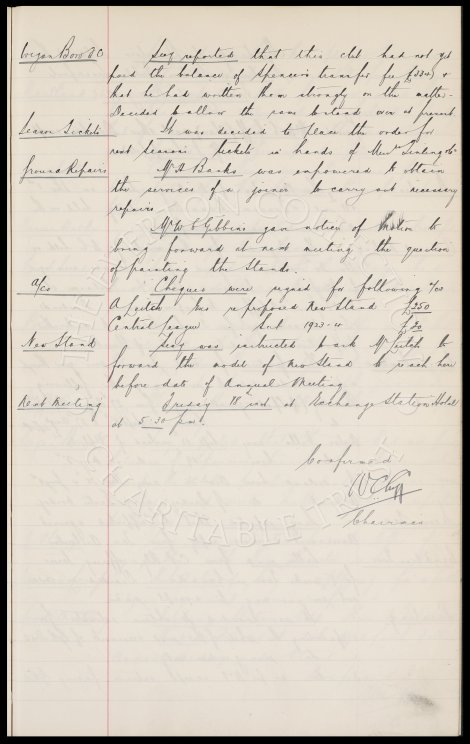 Wigan Boro FC Secy reported that this club had not yet
paid the balance of Spencer's transfer fee £334, &
that he had written them strongly on the matter.
Decided to allow the same to stand over at present
Season Tickets It was decided to place the order for
next seasons tickets in hands of Printing Co
Ground Repairs Mr A Banks was empowered to obtain
the services of a joiner to carry out necessary
repairs
Mr W C Gibbins gave notice of Motion to
bring forward at next meeting the question
of painting the Stands.
a/cs Cheques were signed for following a/cs
A Leitch re proposed New Stand £250
Central League Sub 1923-4 £20
New Stand Secy was instructed to ask Mr Leitch to
forward the model of New Stand to reach here
before date of Annual Meeting
Next Meeting Friday 18 inst at Exchange Station Hotel
at 5-30 pm.
Confirmed
W C Cuff
Chairman
THE EVERTON COLLECTION
CHARITABLE TRUST